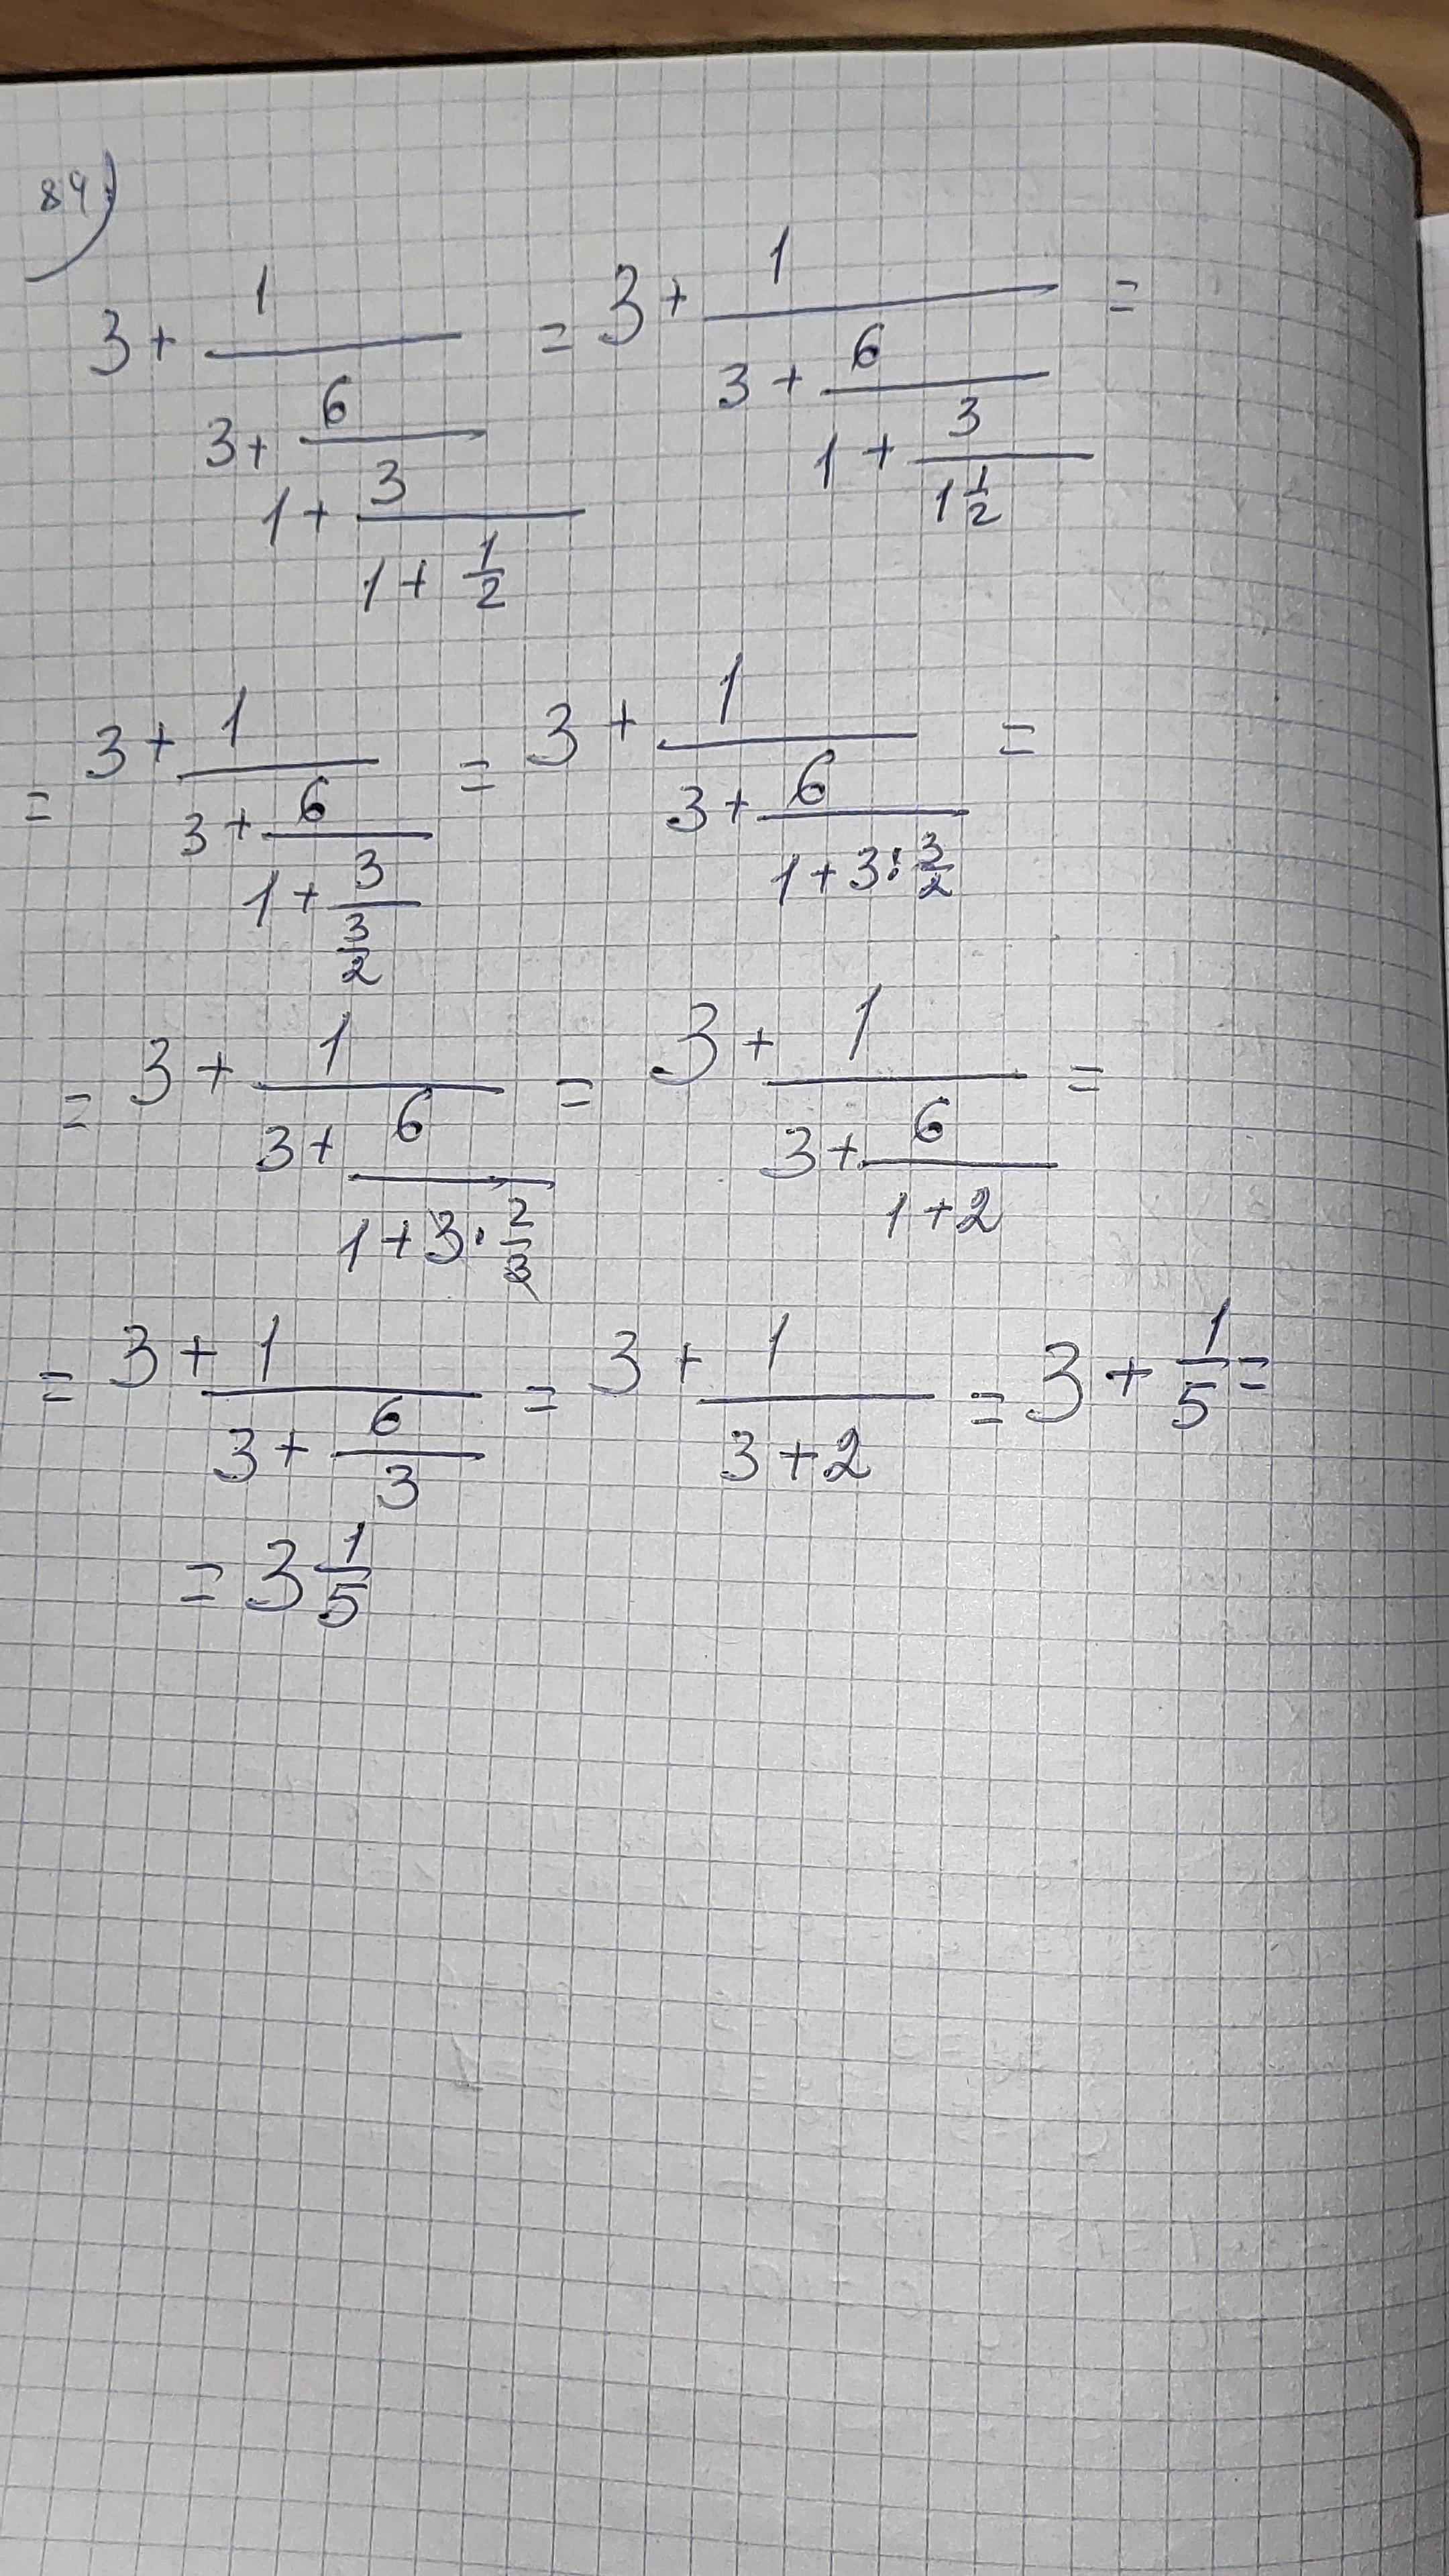 84)
3 + 1/(3 + 6/(1 + 3/(1 + 1/2))) = 3 + 1/(3 + 6/(1 + 3/(1 1/2))) =
= 3 + 1/(3 + 6/(1 + 3/(3/2))) = 3 + 1/(3 + 6/(1 + 3 : 3/2)) =
= 3 + 1/(3 + 6/(1 + 3 · 2/3)) = 3 + 1/(3 + 6/(1 + 2)) =
= 3 + 1/(3 + 6/3) = 3 + 1/(3 + 2) = 3 + 1/5 =
= 3 1/5